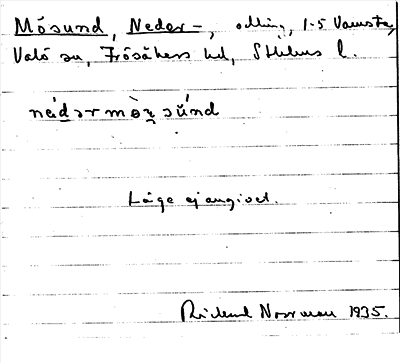 Mösund, Neder-, odling, 1-5 Vamsta,
Vätö sn, Frösåkers hd, Sthlms l.
néidərmö̀ʐsúnd
Läge ej angivet.
Rickard Norrman 1935.